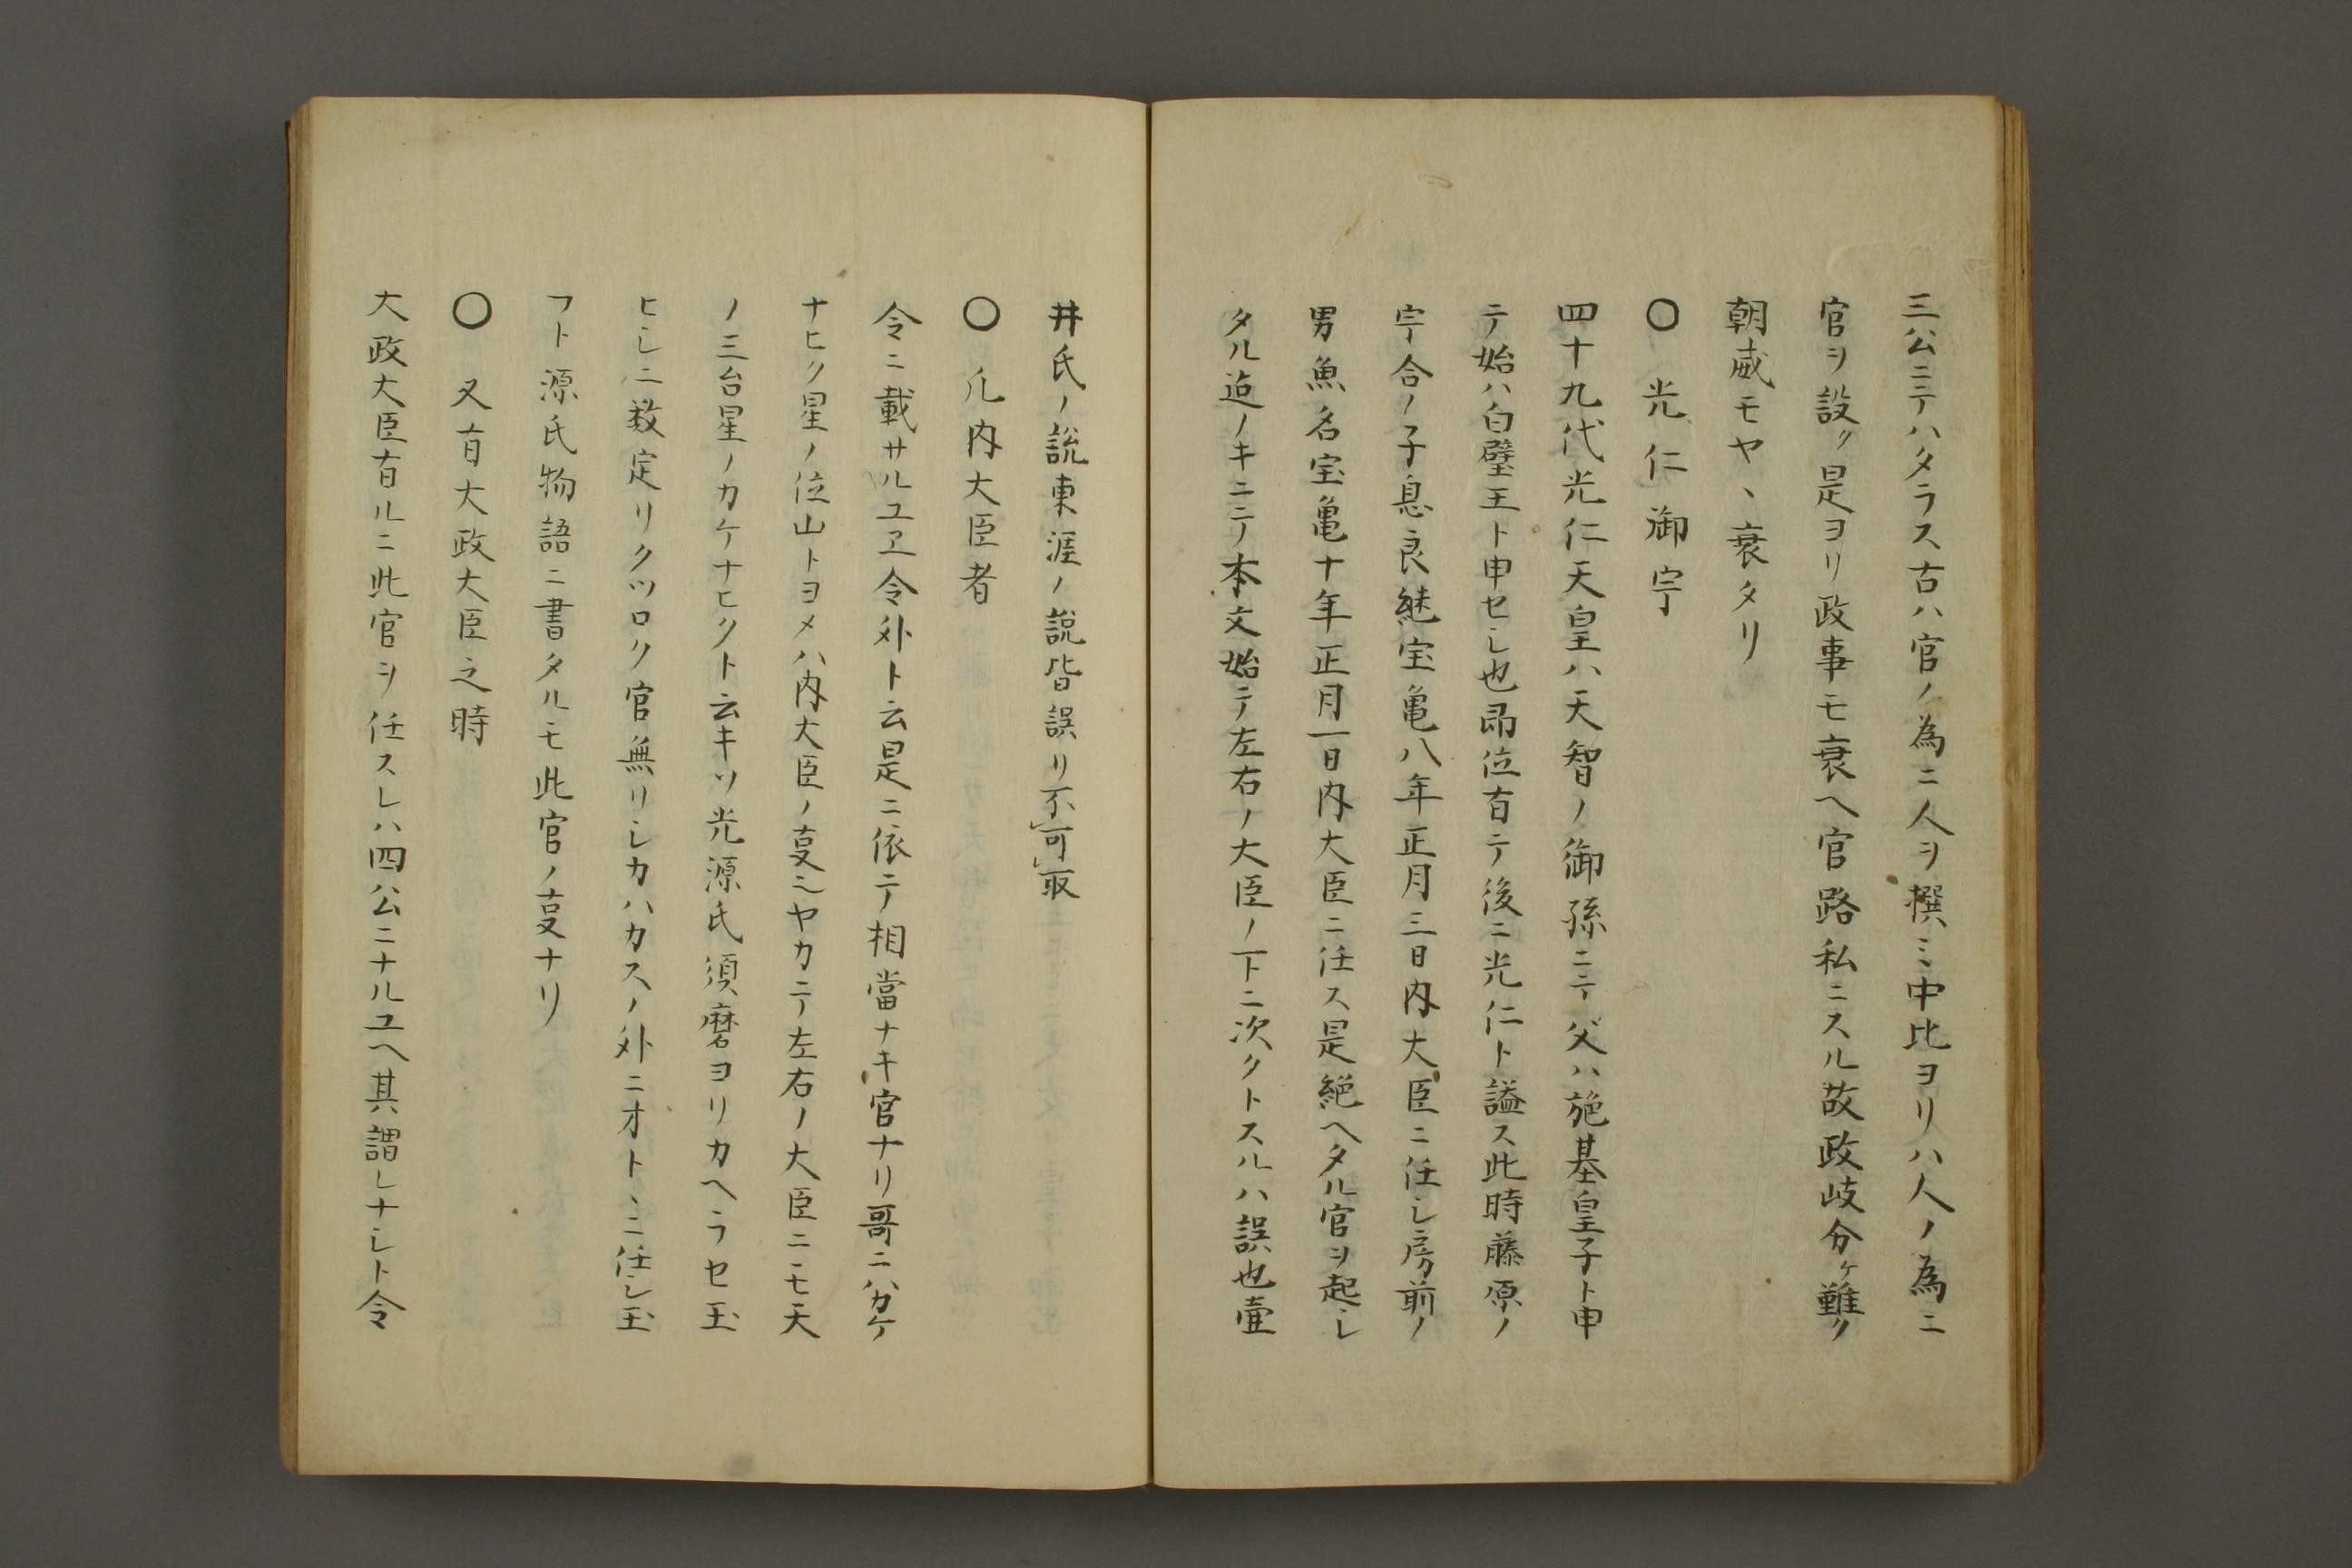 三公ニテハタラス古ハ官ノ為ニ人ヲ撰ミ中比ヨリハ人ノ為ニ
官ヲ設ク是ヨリ政事モ衰ヘ官路私ニスル故政岐分ケ難ク
朝威モヤヽ衰タリ
〇光仁御宇
四十九代光仁天皇ハ天智ノ御孫ニテ父ハ施基皇子ト申
テ始ハ白璧王ト申セシ也即位有テ後ニ光仁ト謚ス此時藤原ノ
宇合ノ子息良継宝亀八年正月三日内大臣ニ任シ房前ノ
男魚名宝亀十年正月一日内大臣ニ任ス是絶ヘタル官ヲ起シ
タル迄ノキニテ本文始テ左右ノ大臣ノ下ニ次クトスルハ誤也壷
井氏ノ説東涯ノ説皆誤リ不可取
〇凡内大臣者
令ニ載サルユヱ令外ト云是ニ依テ相當ナキ官ナリ哥ニハカケ
ナヒク星ノ位山トヨメハ内大臣ノ㕝シヤカニテ左右ノ大臣ニモ天
ノ三台星ノカケナヒクト云キソ光源氏須磨ヨリカヘラセ玉
ヒシニ数定リクツロク官無リシカハカスノ外ニオトヽニ任シ玉
フト源氏物語ニ書タルモ此官ノ㕝ナリ
〇又有大政大臣之時
大政大臣有ルニ此官ヲ任スレハ四公ニナルユヘ其謂レナシト令